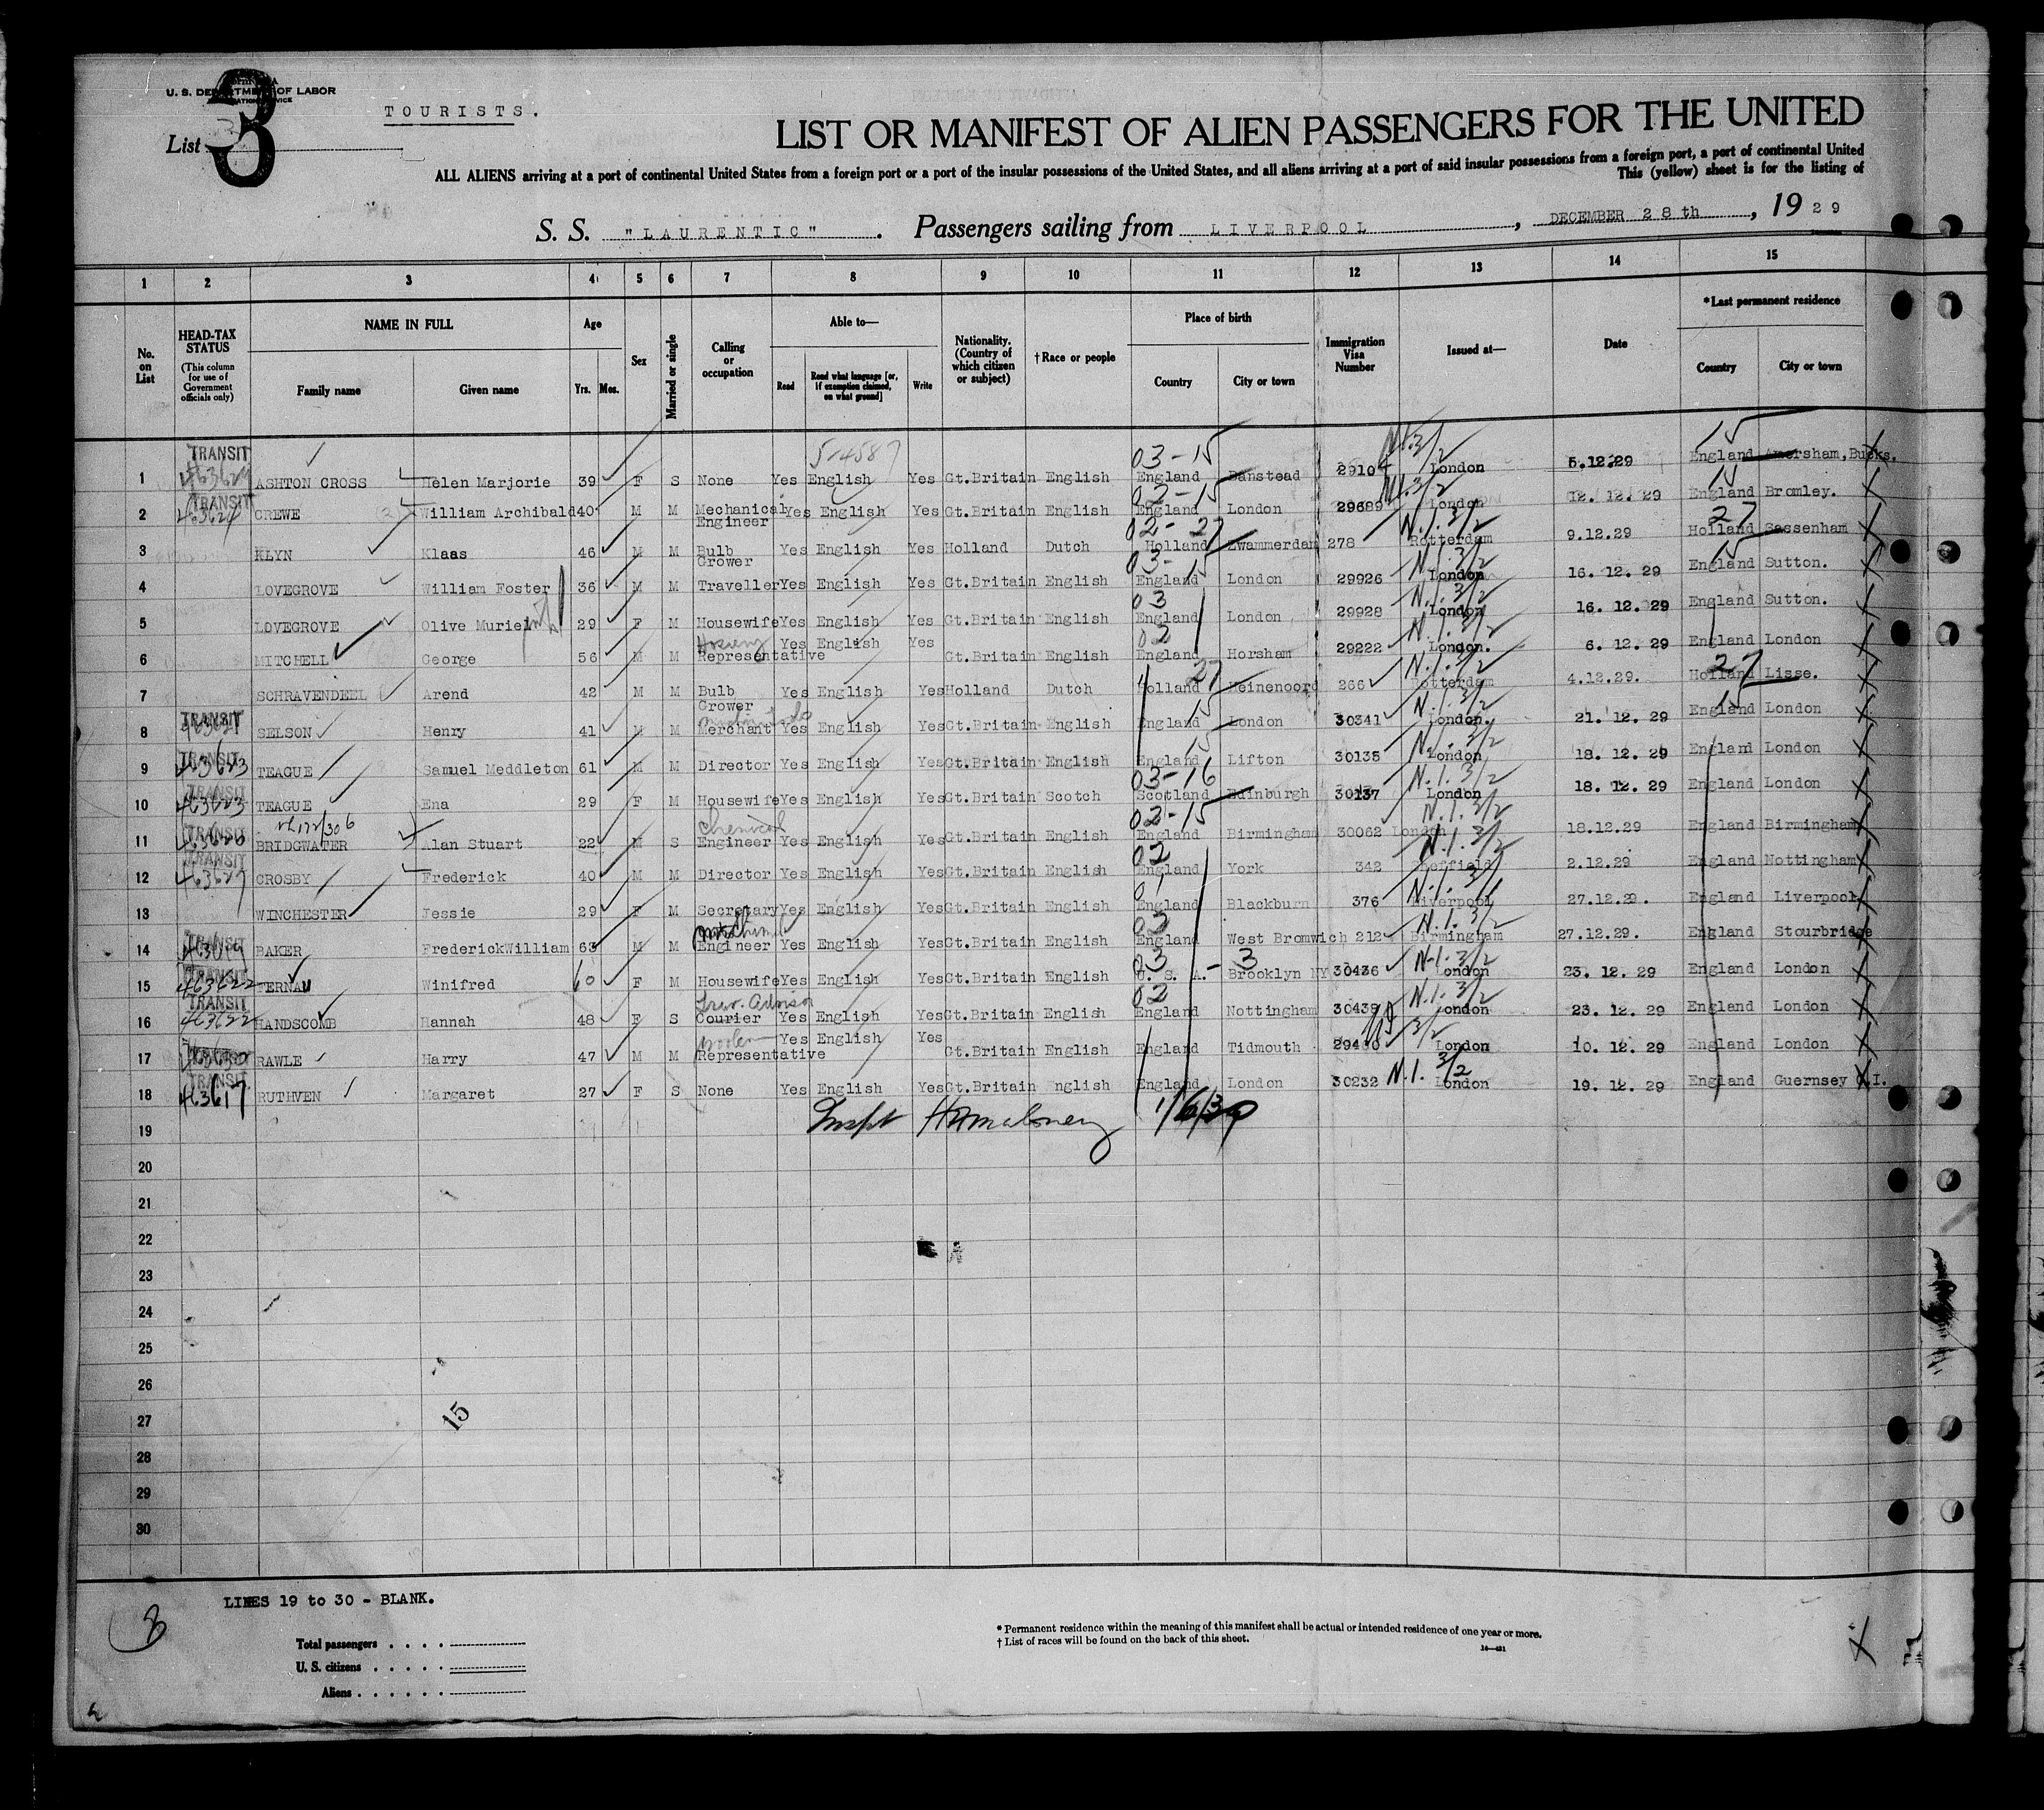 U. S. DEPARTMENT OF LABOR
TOURISTS.
List 3
LIST OR MANIFEST OF ALIEN PASSENGERS FOR THE UNITED
ALL ALIENS arriving at a port of continental United States from a foreign port or a port of the insular possessions of the United States, and all aliens arriving at a port of said insular possessions from a foreign port, a port of continental United
This (yellow) sheet is for the listing of
S. S. "LAURENTIC". Passengers sailing from LIVERPOOL, DECEMBER 28th, 1929
1 2 3 4 5 6 7 8 9 10 11 12 13 14 15
No. on List
HEAD-TAX STATUS (This column for use of Government officials only)
NAME IN FULL Family name Given name
Age Yrs. Mos.
Sex
Married or single
Calling or occupation
Able to— Read Read what language [or, if exemption claimed, on what ground] Write
Nationality. (Country of which citizen or subject)
†Race or people
Place of birth Country City or town
Immigration Visa Number
Issued at—
Date
*Last permanent residence Country City or town
5-4587 03-15 N.I.3/2 15
1 TRANSIT ASHTON CROSS Helen Marjorie 39 F S None Yes English Yes Gt.Britain English England Banstead 29104 London 5.12.29 England Amersham, Bucks.
02-15 N.I.3/2 15
2 TRANSIT 463624 CREWE William Archibald 40 M M Mechanical Engineer Yes English Yes Gt.Britain English England London 29689 London 12.12.29 England Bromley.
02-27 N.I.3/2 27
3 KLYN Klaas 46 M M Bulb Grower Yes English Yes Holland Dutch Holland Zwammerdam 278 Rotterdam 9.12.29 Holland Sassenham
03-15 N.I.3/2 15
4 LOVEGROVE William Foster 36 M M Traveller Yes English Yes Gt.Britain English England London 29926 London 16.12.29 England Sutton.
03 N.I.3/2
5 LOVEGROVE Olive Muriel 29 F M Housewife Yes English Yes Gt.Britain English England London 29928 London 16.12.29 England Sutton.
02 N.I.3/2
6 MITCHELL George 56 M M Representative Yes English Yes Gt.Britain English England Horsham 29222 London. 6.12.29 England London
27 N.I.3/2 27
7 SCHRAVENDEEL Arend 42 M M Bulb Grower Yes English Yes Holland Dutch Holland Heinenoord 266 Rotterdam 4.12.29. Holland Lisse.
15 N.I.3/2 15
8 TRANSIT SELSON Henry 41 M M Merchant Yes English Yes Gt.Britain English England London 30341 London. 21.12.29 England London
15 N.I.3/2
9 TRANSIT 463623 TEAGUE Samuel Meddleton 61 M M Director Yes English Yes Gt.Britain English England Lifton 30135 London 18.12.29 England London
03-16 N.I.3/2
10 TRANSIT 463623 TEAGUE Ena 29 F M Housewife Yes English Yes Gt.Britain Scotch Scotland Edinburgh 30137 London 18.12.29 England London
Chemical 02-15 N.I.3/2
11 TRANSIT BRIDGWATER Alan Stuart 22 M S Engineer Yes English Yes Gt.Britain English England Birmingham 30062 London 18.12.29 England Birmingham
02 N.I.3/2
12 TRANSIT 463627 CROSBY Frederick 40 M M Director Yes English Yes Gt.Britain English England York 342 Sheffield 2.12.29 England Nottingham
13 WINCHESTER Jessie 29 F M Secretary Yes English Yes Gt.Britain English England Blackburn 376 Liverpool 27.12.29. England Liverpool
N.I.3/2
14 TRANSIT BAKER Frederick William 63 M M Engineer Yes English Yes Gt.Britain English England West Bromwich 212 Birmingham 27.12.29. England Stourbridge
03 - 3 N.I.3/2
15 TRANSIT 463622 TERNAU Winifred 60 F M Housewife Yes English Yes Gt.Britain English U. S. A. Brooklyn NY 30436 London 23.12.29 England London
Trav. Advisor 02 N.I.3/2
16 TRANSIT 463622 HANDSCOMB Hannah 48 F S Courier Yes English Yes Gt.Britain English England Nottingham 30439 London 23.12.29 England London
17 RAWLE Harry 47 M M Representative Yes English Yes Gt.Britain English England Tidmouth 29460 London 10.12.29 England London
N.I. 3/2
18 TRANSIT 463617 RUTHVEN Margaret 27 F S None Yes English Yes Gt.Britain English England London 30232 London 19.12.29 England Guernsey C.I.
19 Inspt H Maloney 1/6/30
20
21
22
23
24
25
26
27 15
28
29
30
LINES 19 to 30 - BLANK.
Total passengers
U. S. citizens
Aliens
* Permanent residence within the meaning of this manifest shall be actual or intended residence of one year or more.
† List of races will be found on the back of this sheet.